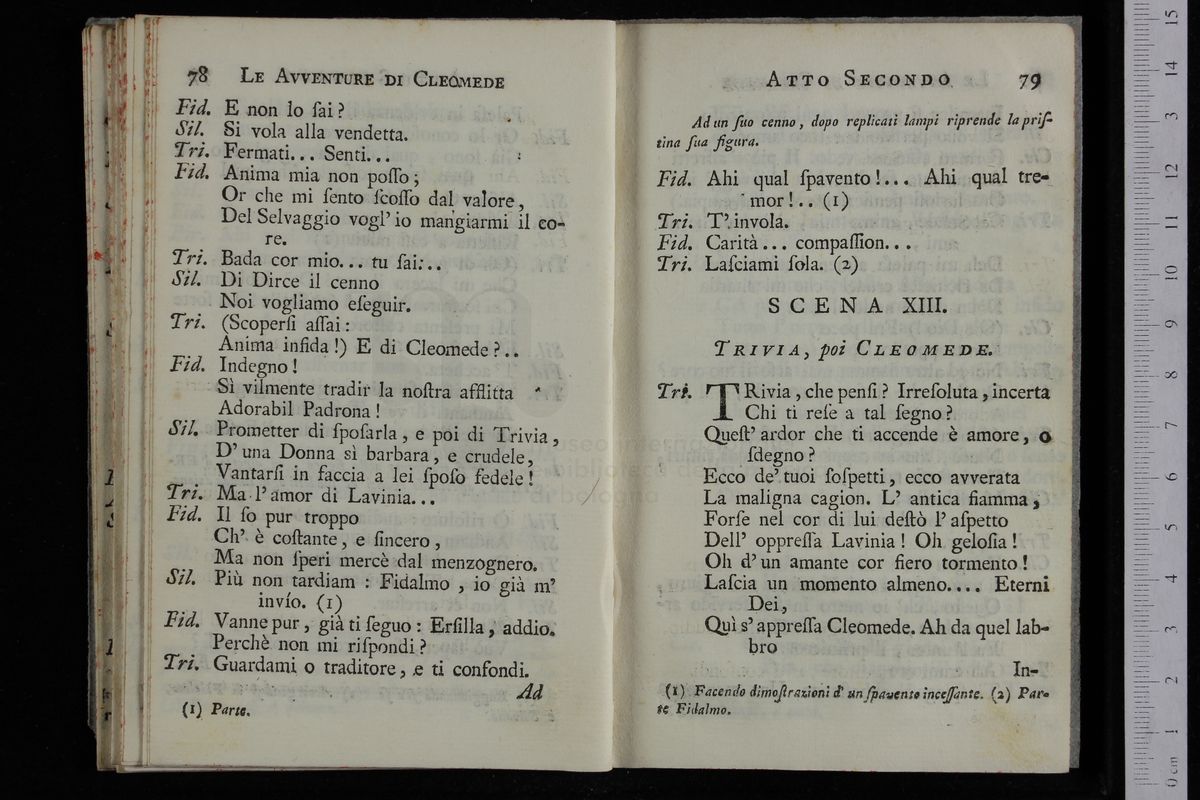 78 LE AVVENTURE DI CLEOMEDE
Fid. E non lo ſai?
Sil. Si vola alla vendetta.
Tri. Fermati... Senti...
Fid. Anima mia non poſſo;
Or che mi ſento ſcoſſo dal valore,
Del Selvaggio vogl' io mangiarmi il co-
re.
Tri. Bada cor mio... tu ſai:..
Sil. Di Dirce il cenno
Noi vogliamo eſeguir.
Tri. (Scoperſi aſſai:
Anima infida!) E di Cleomede?..
Fid. Indegno!
Sì vilmente tradir la noſtra afflitta
Adorabil Padrona!
Sil. Prometter di ſpoſarla, e poi di Trivia,
D' una Donna sì barbara, e crudele,
Vantarſi in faccia a lei ſpoſo fedele!
Tri. Ma l' amor di Lavinia...
Fid. Il ſo pur troppo
Ch' è coſtante, e ſincero,
Ma non ſperi mercè dal menzognero.
Sil. Più non tardiam : Fidalmo, io già m'
invío. (1)
Fid. Vanne pur, già ti ſeguo: Erſilla, addio.
Perchè non mi riſpondi?
Tri. Guardami o traditore, e ti confondi.
Ad
(1) Parte.
ATTO SECONDO. 79
Ad un ſuo cenno, dopo replicati lampi riprende la priſ-
tina ſua figura.
Fid. Ahi qual ſpavento!... Ahi qual tre-
mor!.. (1)
Tri. T' invola.
Fid. Carità... compaſſion...
Tri. Laſciami ſola. (2)
SCENA XIII.
TRIVIA, poi CLEOMEDE.
Tri. TRivia, che penſi? Irreſoluta, incerta
Chi ti reſe a tal ſegno?
Queſt' ardor che ti accende è amore, o
ſdegno?
Ecco de' tuoi ſoſpetti, ecco avverata
La maligna cagion. L' antica fiamma,
Forſe nel cor di lui deſtò l' aſpetto
Dell' oppreſſa Lavinia! Oh geloſia!
Oh d' un amante cor fiero tormento!
Laſcia un momento almeno.... Eterni
Dei,
Quì s' appreſſa Cleomede. Ah da quel lab-
bro
In-
(1) Facendo dimoſtrazioni d' un ſpavento inceſſante. (2) Par-
te Fidalmo.
0 cm 1 2 3 4 5 6 7 8 9 10 11 12 13 14 15